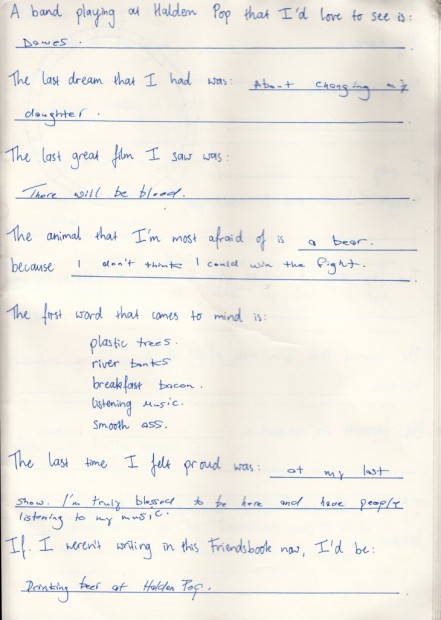 A band playing at Halden Pop that I'd love to see is:
Dawes.
The last dream that I had was: About changing my
daughter.
The last great film I saw was:
There will be blood.
The animal that I'm most afraid of is a bear.
because I don't think I could win the fight.
The first word that comes to mind is:
plastic trees.
river banks
breakfast bacon.
listening music.
smooth ass.
The last time I felt proud was: at my last
show. I'm truly blessed to be here and have people
listening to my music.
If I weren't writing in this Friendsbook now, I'd be:
Drinking beer at Halden Pop.